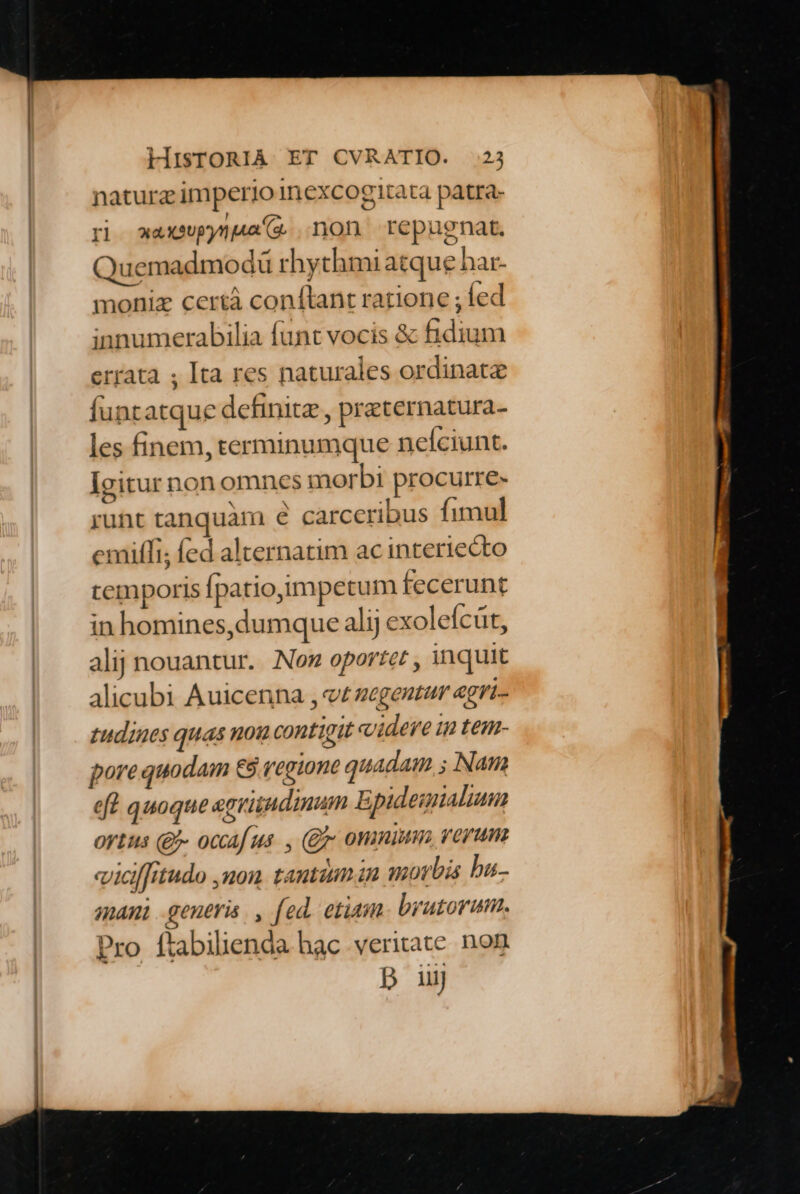 HISTORIA ET CVRATIO. 23
naturæ imperio inexcogitata patra-
ri κακουργήματα non repugnat.
Quemadmodū rhythmi atque har-
moniæ certâ conſtant ratione; ſed
innumerabilia ſunt vocis & fidium
errata; Ita res naturales ordinatæ
ſunt atque definitæ, præternatura-
les finem, terminumque neſciunt.
Igitur non omnes morbi procurre-
runt tanquàm è carceribus ſimul
emiſſi; ſed alternatim ac interiecto
temporis ſpatio, impetum fecerunt
in homines, dumque alij exoleſcūt,
alij nouantur. Non oportet, inquit
alicubi Auicenna, vt negentur ægri-
tudines quas non contigit videre in tem-
pore quodam & regione quadam; Nam
eſt quoque ægritudinum Epidemialium
ortus & occaſus, & omnium rerum
viciſſitudo, non tantùm in morbis hu-
mani generis, ſed etiam brutorum.
Pro ſtabilienda hac veritate non
B iiij